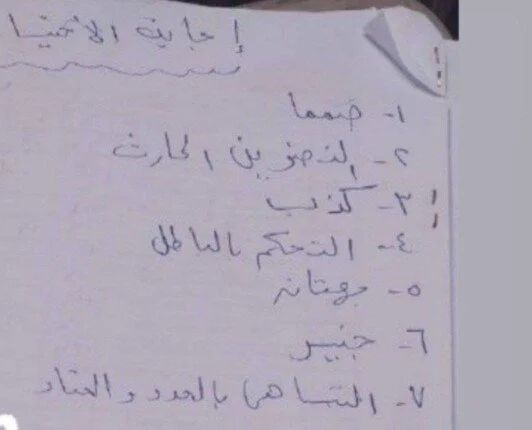 إجابة الاختيا
١- صمما
٢- النضر بن الحارث
٣- كذب
٤- التحكم بالباطل
٥- بهتانه
٦- جنيس
٧- التباهي بالعدد والعتاد